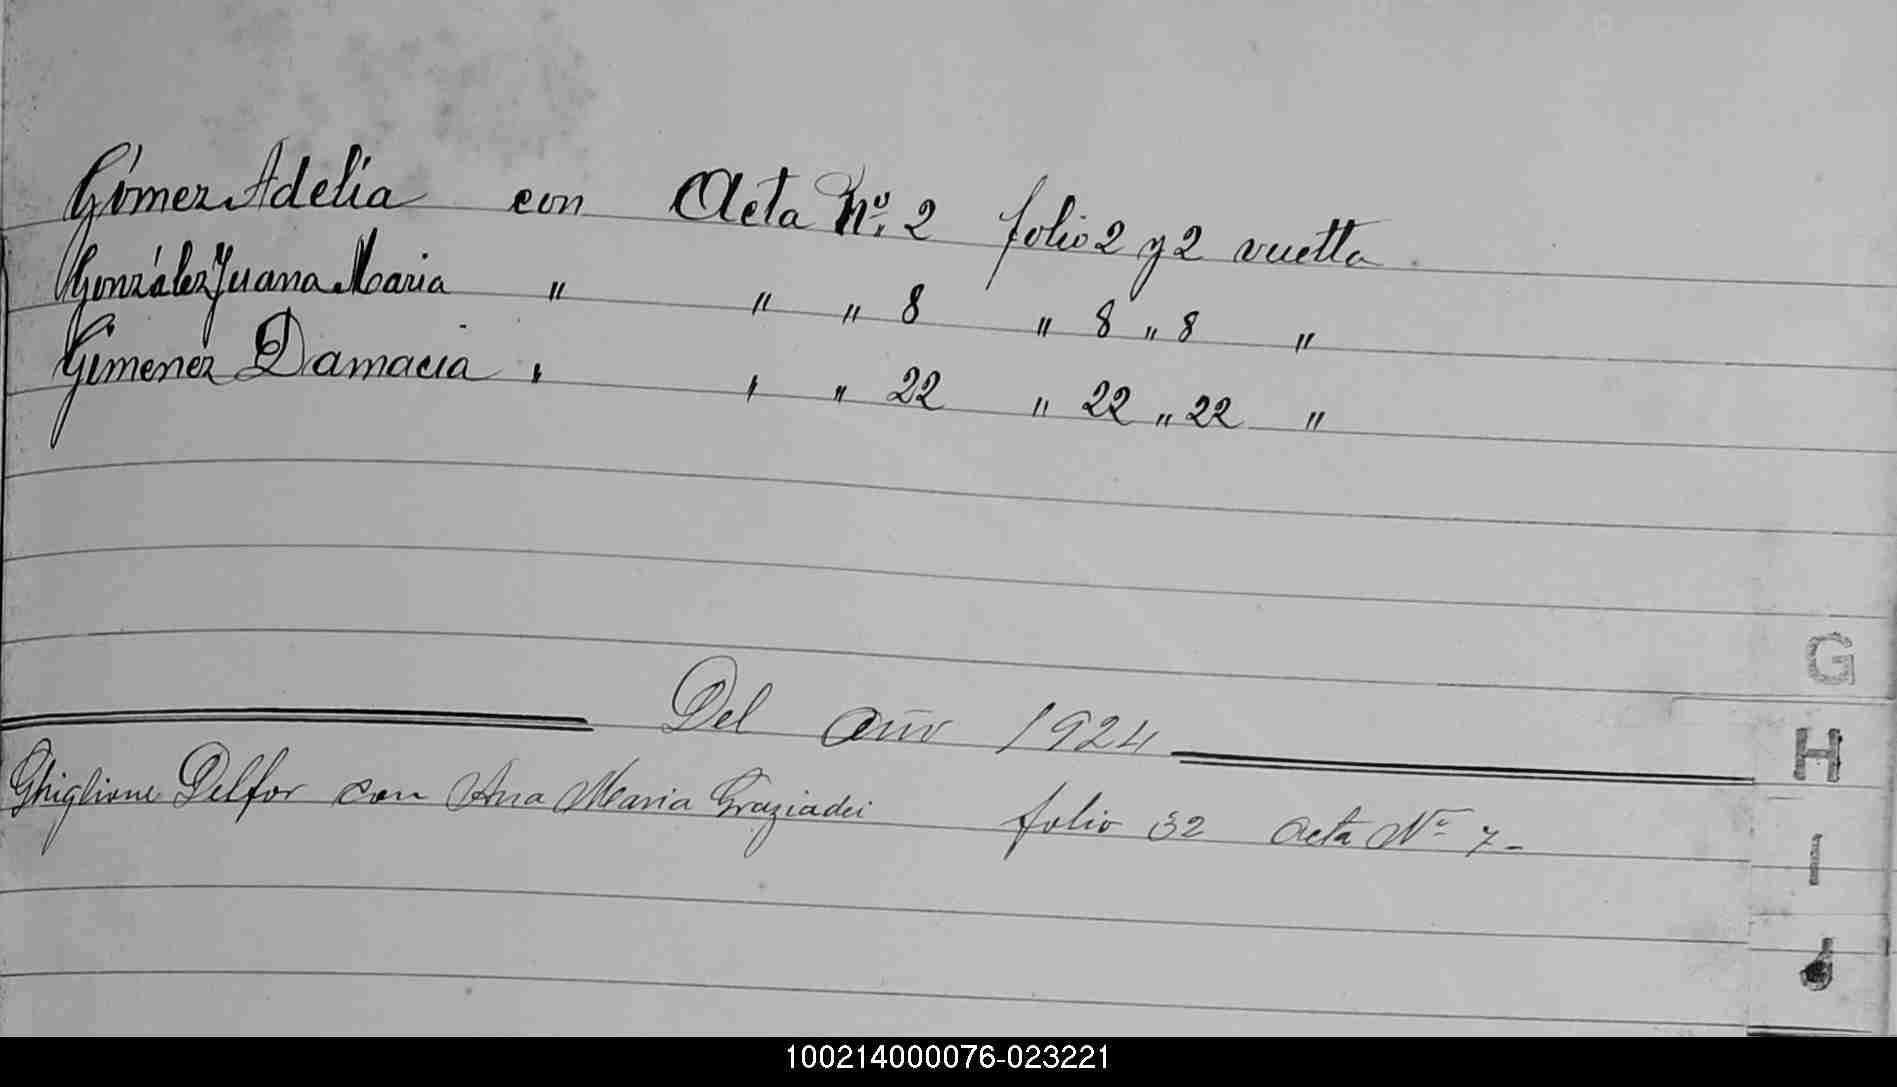 Gómez Adelia con Acta Nº. 2 folio 2 y 2 vuelta
González Juana Maria " " " 8 " 8 " 8 "
Gimenez Damacia " " " 22 " 22 " 22 "
G
Del año 1924
H
Ghiglione Delfor con Ana Maria Graziadei folio 32 Acta Nº 7-
I
J
100214000076-023221